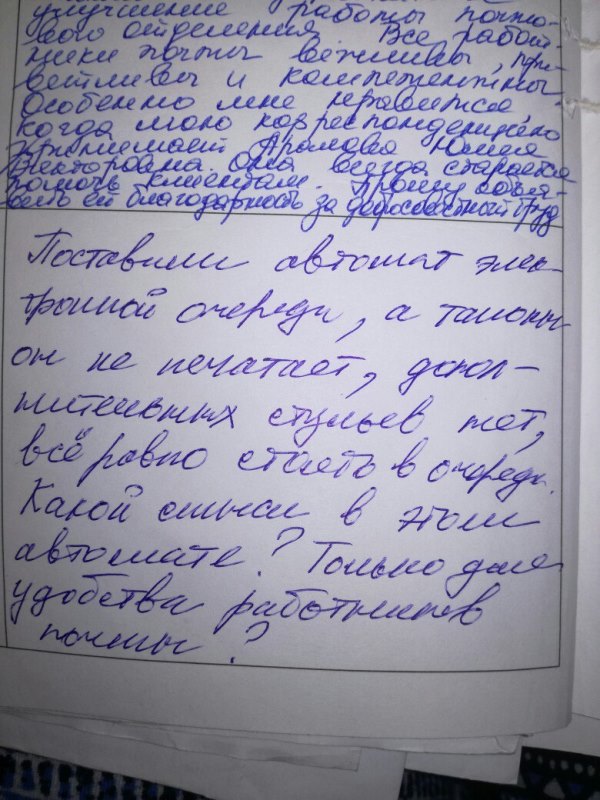 улучшение работы почто-
вого отделения. Все работ-
ники почты вежливы, при-
ветливы и компетентны.
Особенно мне нравится,
когда мою корреспонденцию
принимает Юлия
Викторовна. Она всегда старается
помочь клиентам. Прошу объя-
вить ей благодарность за добросовестный труд
Поставили автомат элек-
тронной очереди, а талоны
он не печатает, допол-
нительных стульев нет,
всё равно стоять в очереди.
Какой смысл в этом
автомате? Только для
удобства работников
почты?